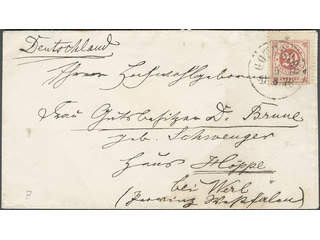 Deutschland
Ihrer Hochwohlgeboren
Frau Gutsbesitzer D. Brune
geb. Schwenger
Haus Hoppe
bei Werl
(Provinz Westfalen)
20